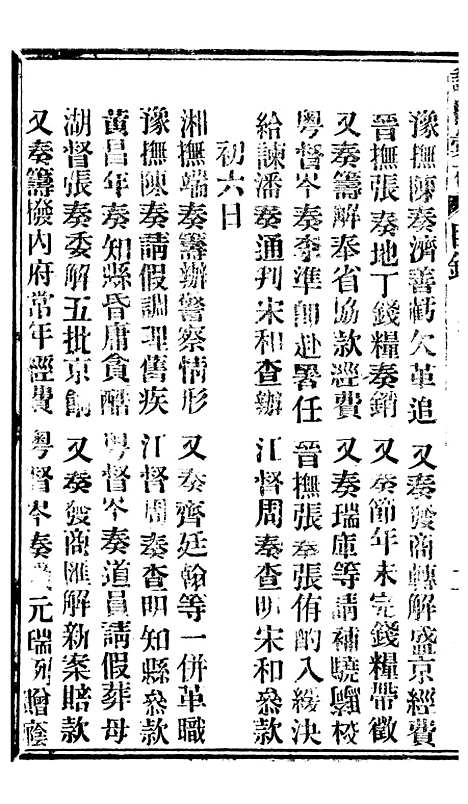 豫撫陳奏濟善虧欠革追　又奏發商轉解盛京經費
晉撫張奏地丁錢糧奏銷　又奏節年未完錢糧帶徵
又奏籌解奉省協款經費　又奏瑞庫等請補驍騎校
粵督岑奏李準卸赴署任　晉撫張奏張侑酌入緩決
給諫潘奏通判宋和查辦　江督周奏查明宋和叅款
初六日
湘撫端奏籌辦警察情形　又奏齊廷翰等一併革職
豫撫陳奏請假調理舊疾　江督周奏查明知縣叅款
黃昌年奏知縣昏庸貪酷　粵督岑奏道員請假葬母
湖督張奏委解五批京餉　又奏發商匯解新案賠款
又奏籌撥內府常年經費　粵督岑奏元瑞列贈蔭